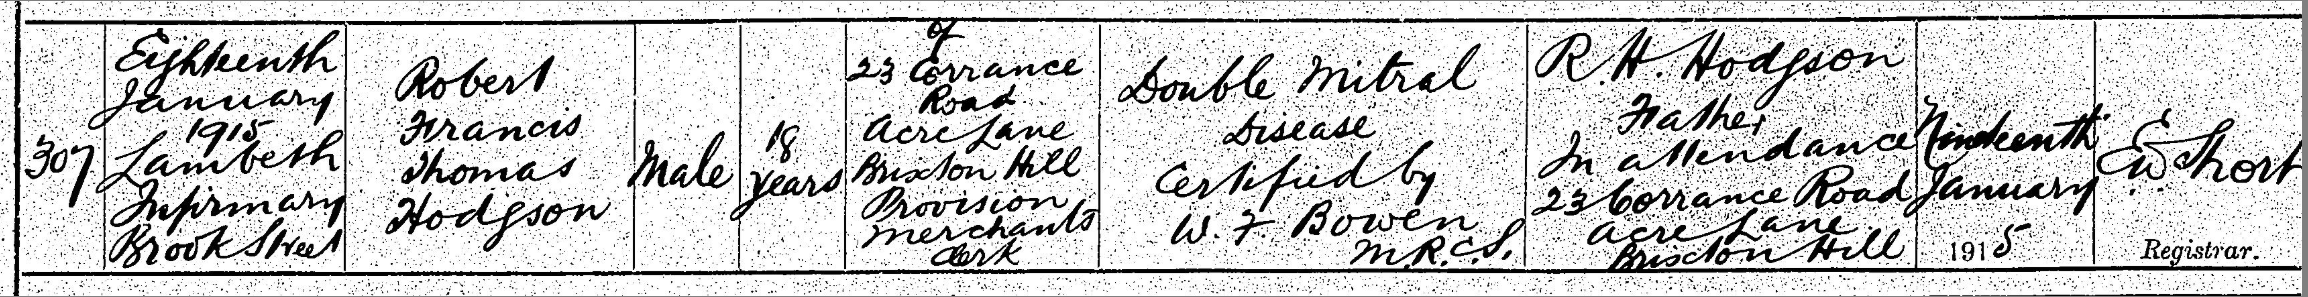 307
Eighteenth
January
1915
Lambeth
Infirmary
Brook Street
Robert
Francis
Thomas
Hodgson
Male
18
years
of
23 Corrance
Road
Acre Lane
Brixton Hill
Provision
Merchants
Clerk
Double Mitral
Disease
Certified by
W. F Bowen
M.R.C.S.
R. H. Hodgson
Father
In attendance
23 Corrance Road
Acre Lane
Brixton Hill
Nineteenth
January
1915
E W Short
Registrar.